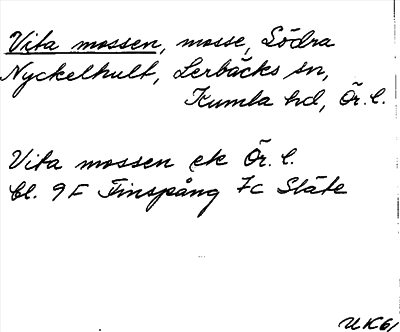 Vita mossen, mosse, Södra
Nyckelhult, Lerbäcks sn,
Kumla hd, Ör. l.
Vita mossen ek Ör. l.
bl. 9F Finspång 7c Släte
UK61